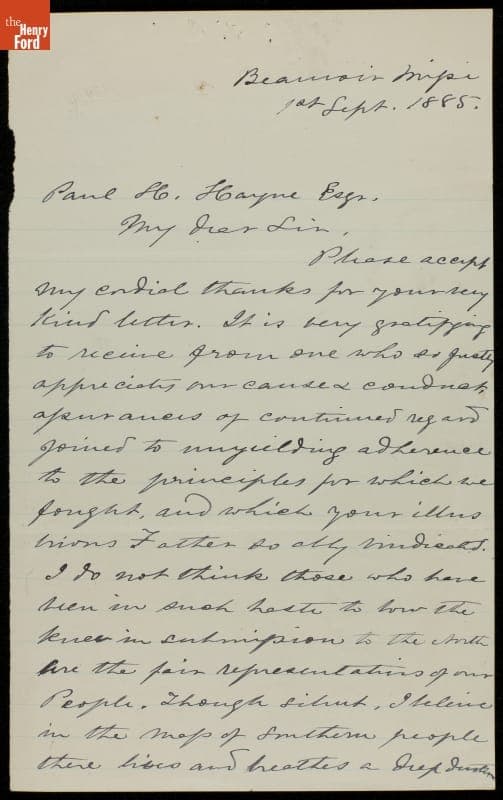 the
Henry
Ford
Beauvoir Missi
1st Sept. 1885.
Paul H. Hayne Esqr.
My dear Sir,
Please accept
my cordial thanks for your very
kind letter. It is very gratifying
to receive from one who so justly
appreciates our cause & conduct,
assurances of continued regard
joined to unyielding adherence
to the principles for which we
fought, and which your illus
trious Father so ably vindicated.
I do not think those who have
been in such haste to bow the
knee in submission to the North
are the fair representatives of our
People. Though silent, I believe
in the mass of Southern people
there lives and breathes a deep